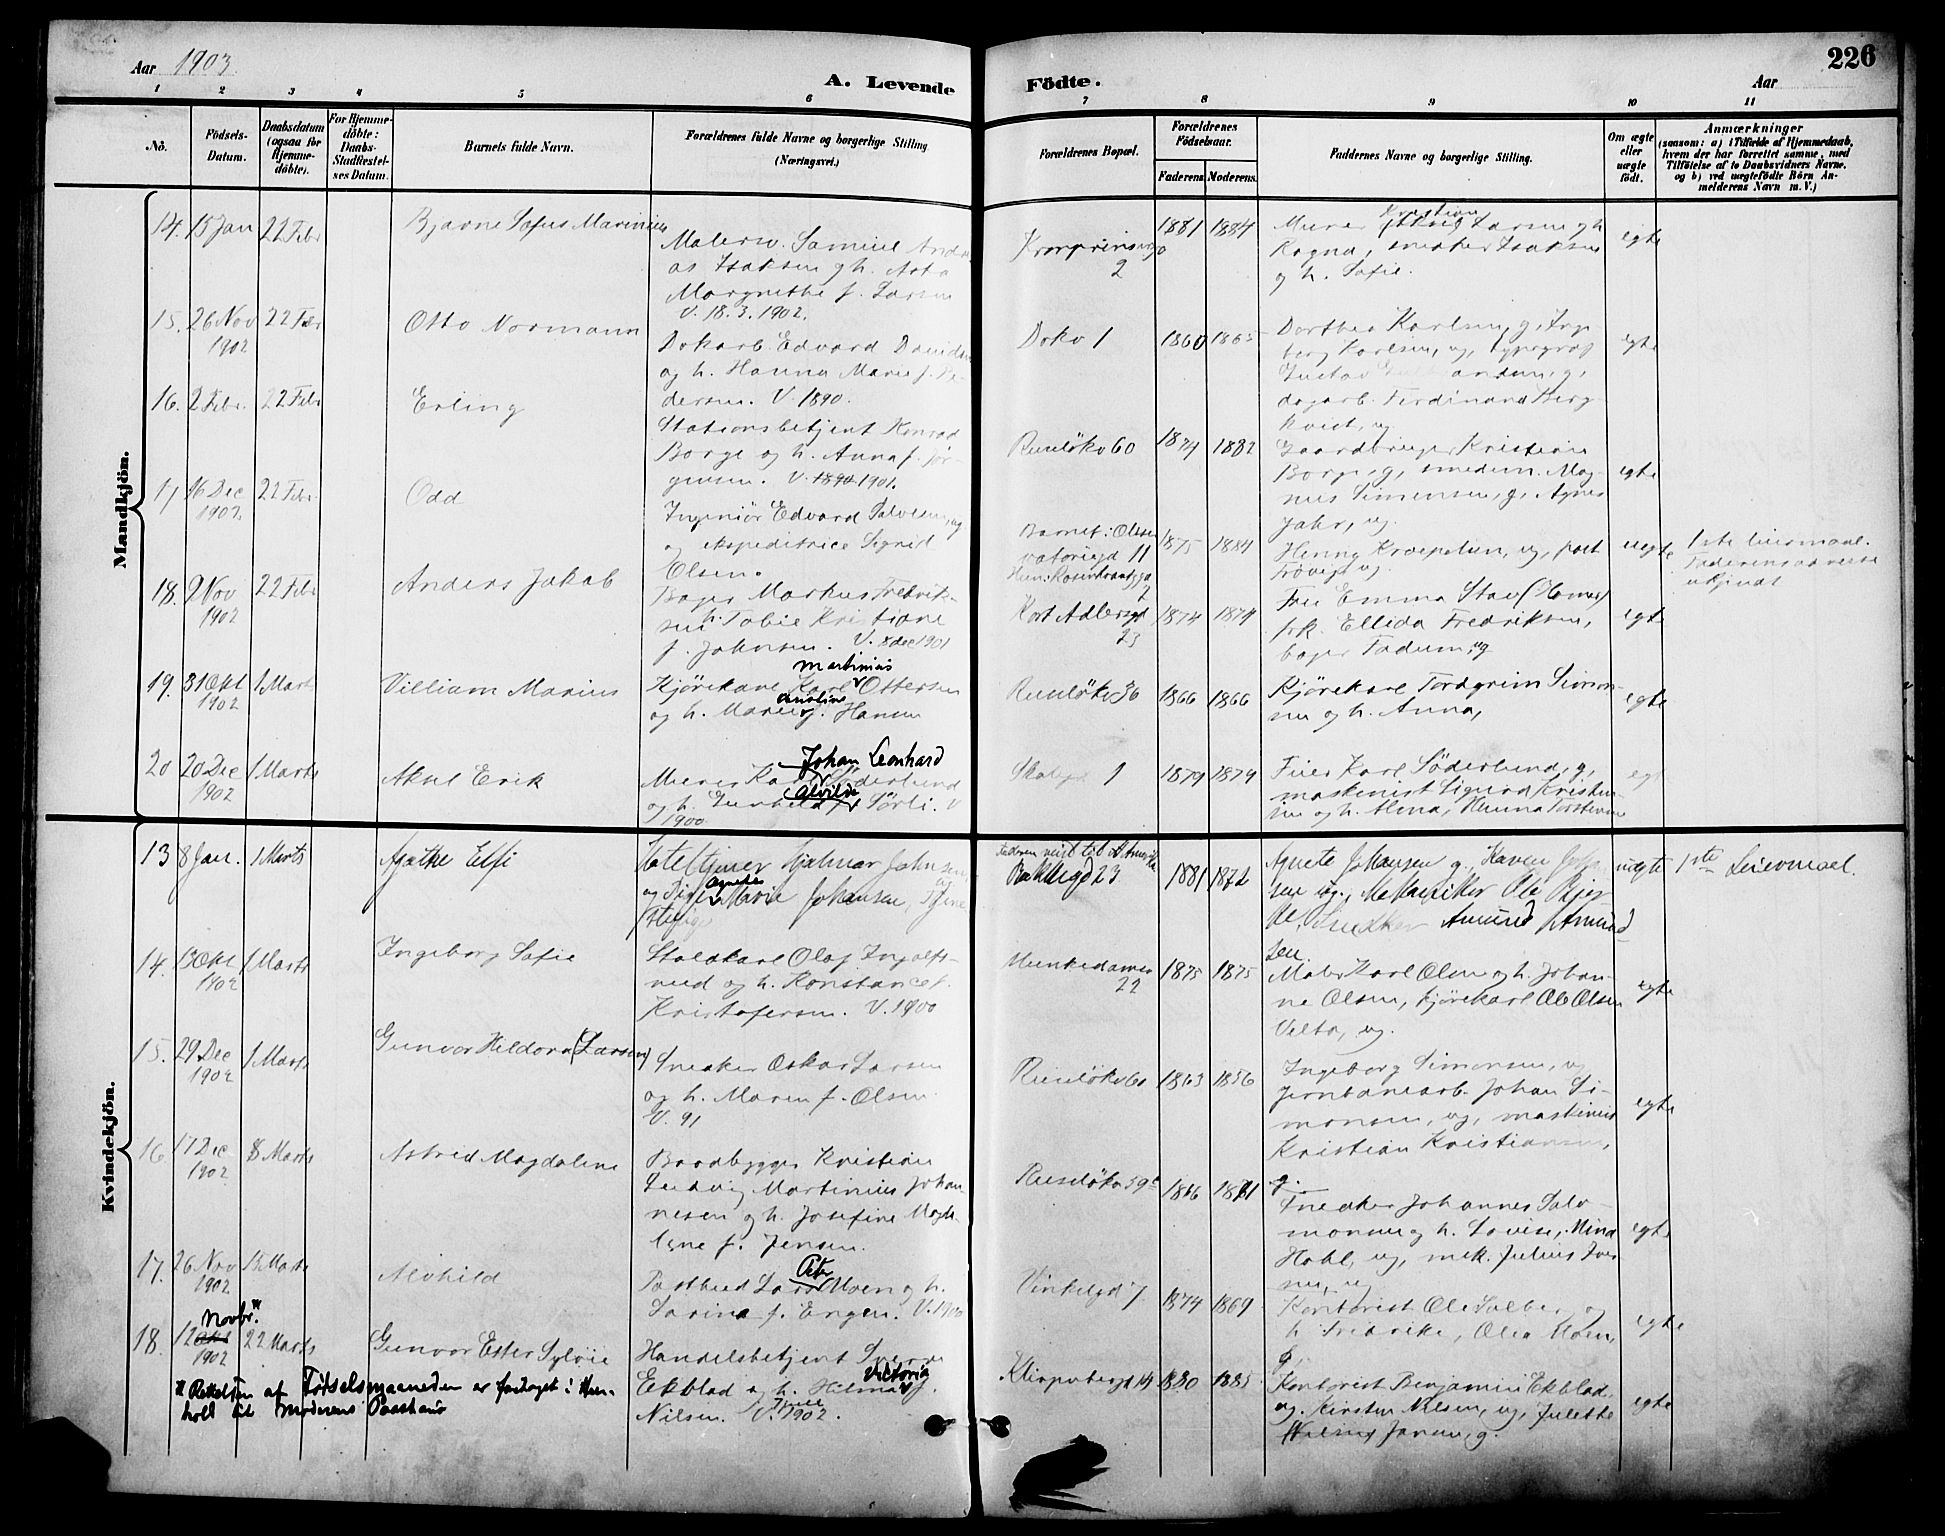 Aar 1903
A. Levende
Födte.
Aar
226
1 2 3 4 5 6 7 8 9 10 11
No.
Födsels-
Datum.
Daabsdatum
(ogsaa for
Hjemme-
döbte).
For Hjemme-
döbte:
Daabs-
Stadfæstel-
ses Datum.
Barnets fulde Navn.
Forældrenes fulde Navne og borgerlige Stilling
(Næringsvei.)
Forældrenes Bopæl.
Forældrenes
Födselsaar.
Faderens Moderens.
Faddernes Navne og borgerlige Stilling.
Om ægte
eller
uægte
födt.
Anmærkninger
(saasom: a) i Tilfælde af Hjemmedaab,
hvem der har forrettet samme, med
Tilföielse af to Daabsvidners Navne,
og b) ved uægtefödte Börn An-
melderens Navn m. V.)
Mandkjön.
14. 15 Jan 22 Febr
Bjarne Sofus Marinius
Malersv. Samuel Andre-
as Isaksen og h. Asta
Margrethe f. Larsen
V. 18.3.1902.
Kronprinsensgd
2
1881 1884
Kristian
Murer Larsen og h
Ragna, snedker Isaksen
og h. Sofie.
egte
15. 26 Nov 22 Febr
1902
Otto Normann
Dokarb. Edvard Davidsen
og h. Hanna Marie f. Pe-
dersen. V. 1890.
Dokv 1
1860 1865
Dorthea Karlsen, g, Inge
borg Karlsen, ug, typograf
Gustav
dagarb. Ferdinand Berg
kvist, ug.
egte
16. 2 Febr. 22 Febr
Erling
Stationsbetjent Konrad
Borge og h. Anna f. Jör-
gensen. V. 1890 1901.
Ruselökv 60
1874 1882
Gaardbruger Kristian
Borge, g, smedm. Mag-
nus Simensen, g, Agnes
Jahr, ug.
egte
17 16 Dec 22 Febr
1902
Odd
Ingeniör Edvard Salvesen, ug
og ekspeditrice Sigrid
Olsen.
Barnet: Obser
vatoriegd 11
Hun: Rosenkrantzgd
2
1875 1884
Henny Kræpelien, ug, post
uegte
1ste leiermaal.
Faderens adresse
18. 9 Nov 22 Febr
1902
Anders Jakob
Bager Markus Fredrik-
sen h. Tobie Kristiane
f. Johnsen. V. 8 dec 1901
Kort Adlersgd
23
1874 1874
Fru Emma Stav (Hamar)
frk. Ellida Fredriksen,
bager Fadum, ug
egte
19. 31 Okt 1 Marts
1902
Villiam Marius
Martinius
Kjörekarl Karl Ottersen
Karoline
og h. Marie f. Hansen
Ruselökv 36
1866 1866
Kjörekarl Tordgrim Simon-
sen og h. Anna,
egte
20 20 Dec 1 Marts
1902
Aksel Erik
Johan Leonhard
Murer Karl Söderlund
Alvilde
og h. Gunhild f. Sörli. V
1900
1
1879 1879
Feier Karl Söderlund, g,
maskinist Sigurd Kristen-
sen og h. Alma, Hanna Torstensen
egt
Kvindekjön.
13 8 Jan. 1 Marts
Agathe Elfi
Hoteltjener Hjalmar Johnsen
Agnetes
og Marie Johansen, Tjene
stepige
Faderen reist til Amerika
Bakkegd 23
1881 1872
Agnete Johansen g., Karen Johan
sen ug., Mekaniker Ole Bjer-
ke, Snedker Amund Amund-
sen
uægte 1ste Leiermaal.
14. 13 Okt 1 Marts
1902
Ingeborg Sofie
Staldkarl Olaf Ingolfs-
rud og h. Konstance f.
Kristofersen. V. 1900
Munkedamsv
22
1875 1875
Maler Karl Olsen og h. Johan-
ne Olsen, kjörekarl Ole Olsen
Velta, ug.
egte
15. 29 Dec 1 Marts
1902
Gunvor Hildora (Larsen)
Snedker Oskar Larsen
og h. Maren f. Olsen
V. 91
Ruselökv 60
1863 1856
Ingeborg Simonsen, u
jernbanearb. Johan Si-
monsen, ug, maskinist
Kristian Kristiansen,
g.
egte
16. 17 Dec 8 Marts
1902
Astrid Magdalene
Baadbygger Kristian
Ludvig Martinius Johan-
nesen og h. Josefine Magda-
lene f. Jensen.
Ruselökv 59c
1866 1871
Snedker Johannes Salo-
monsen og h. Lovise, Mina
Hahl, ug, mek. Julius Iver
sen, ug
egte
17. 26 Nov 15 Marts
1902
Alvhild
Peter
Postbud Lars Moen og h.
Sarina f. Engen. V. 1900
Vinkelgd 7
1874 1869
Kontorist Ole Solberg og
h Fredrike, Olea Moen,
g.
egte
Novbr.*
18. 12 Okt 22 Marts
1902
Gunvor Ester Sylvie
Handelsbetjent Sverre
Victoria
Ekblad og h. Hilma f.
Nilsen. V. Juli 1902.
Klingenberggd 4
1880 1883
Kontorist Benjamin Ekblad,
ug. Kirsten Nilsen, ug, Juliette
Nilsen Jansen, g.
egte
* Rettelsen af Födselsmaaneden er foretaget i Hen-
hold til Moderens Paastand